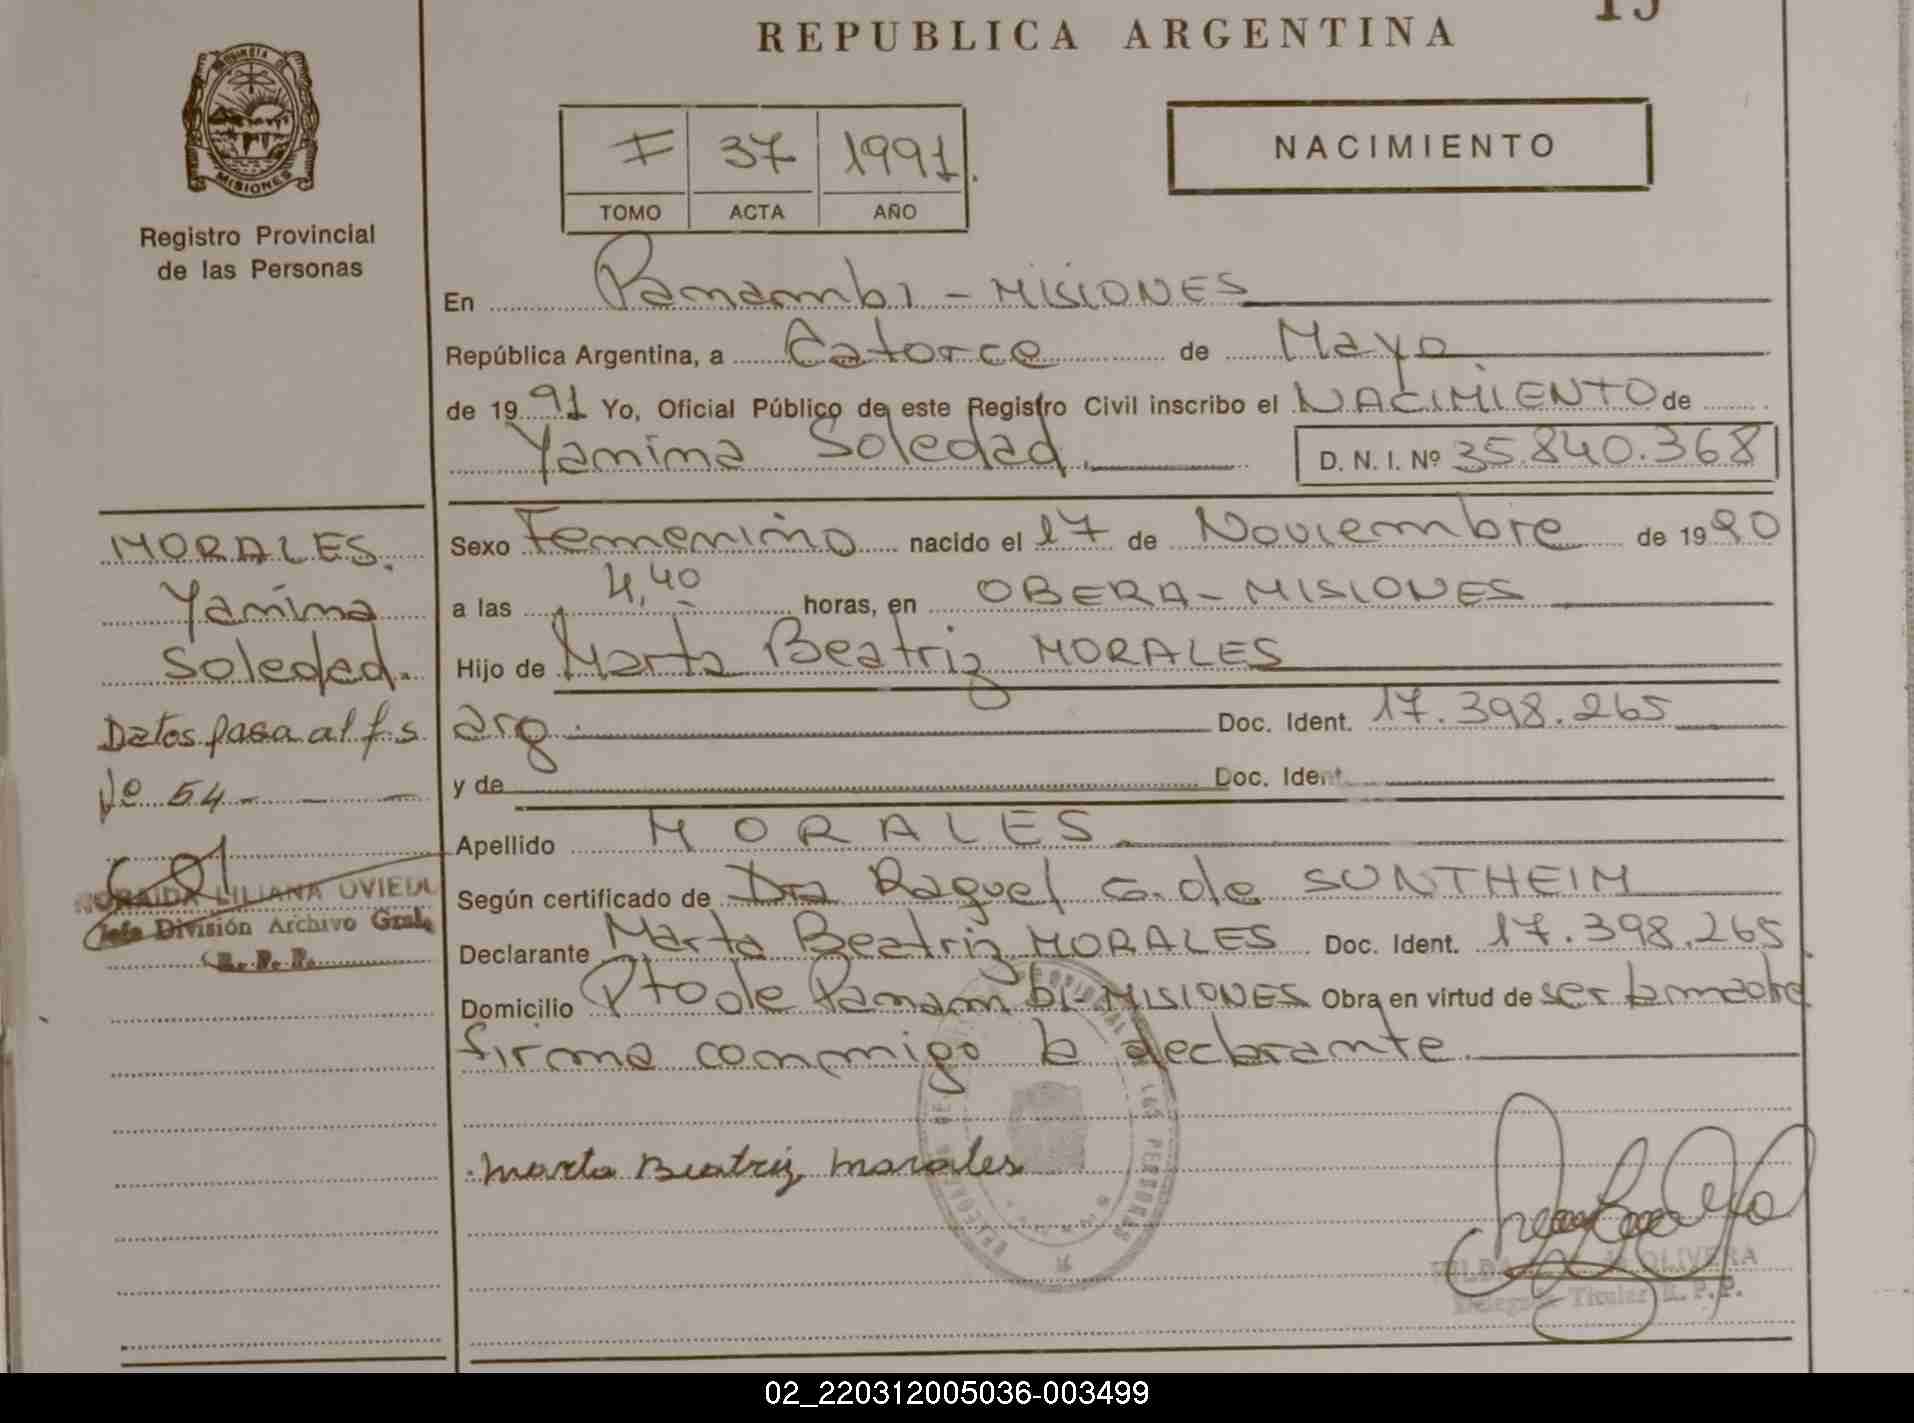 REPUBLICA ARGENTINA
15
MISIONES
Registro Provincial
de las Personas
I 37 1991.
TOMO ACTA AÑO
NACIMIENTO
En Panambi - MISIONES
República Argentina, a Catorce de Mayo
de 1991 Yo, Oficial Público de este Registro Civil inscribo el NACIMIENTO de
Yanina Soledad. D. N. I. Nº 35.840.368
Sexo Femenino nacido el 17 de Noviembre de 1990
a las 4,40 horas, en OBERA - MISIONES
Hijo de Marta Beatriz MORALES
arg. Doc. Ident. 17.398.265
y de Doc. Ident.
Apellido MORALES
Según certificado de Dra Raquel G. de SUNTHEIM
Declarante Marta Beatriz MORALES Doc. Ident. 17.398.265
Domicilio Pto de Panambi - MISIONES Obra en virtud de ser la madre
firma conmigo la declarante.
Marta Beatriz Morales
OLIVERA
Titular R. P. P.
MORALES.
Yanina
Soledad.
Datos pasa al f.s
Nº 54
NORAIDA LILIANA OVIEDO
Jefe División Archivo Gral.
R. P. P.
02_220312005036-003499